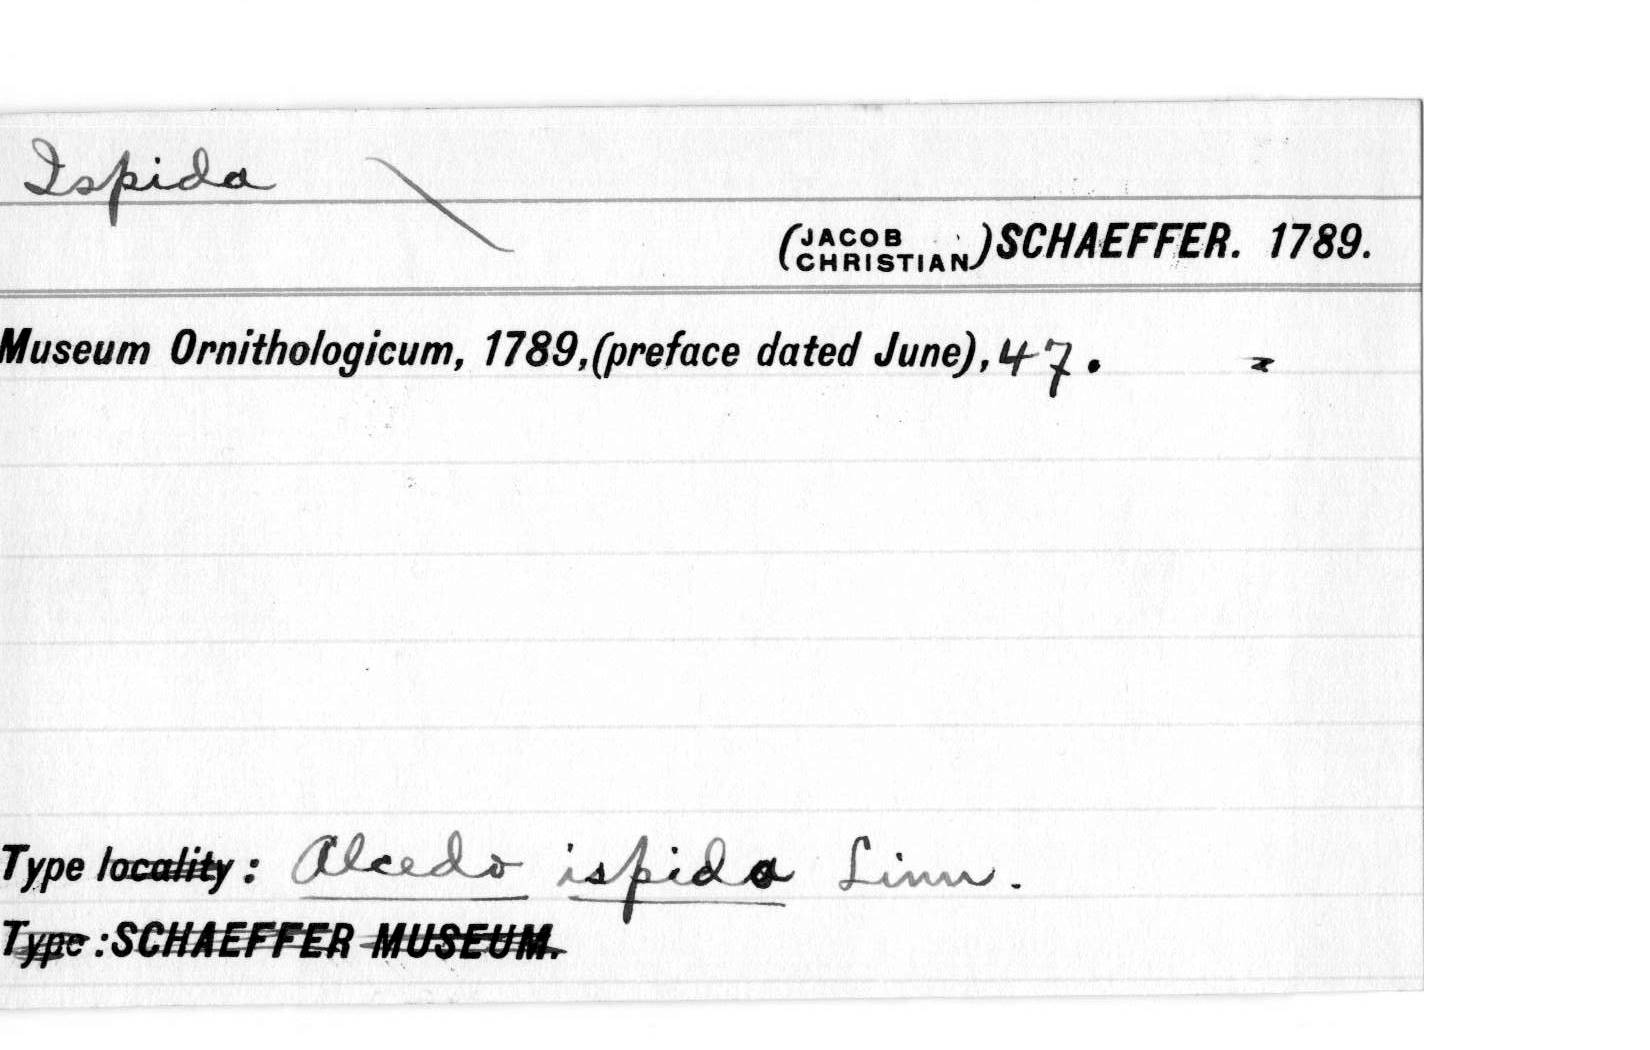 Ispida
(JACOB CHRISTIAN) SCHAEFFER. 1789.
Museum Ornithologicum, 1789,(preface dated June), 47.
Type locality: Alcedo ispida Linn.
Type: SCHAEFFER MUSEUM.